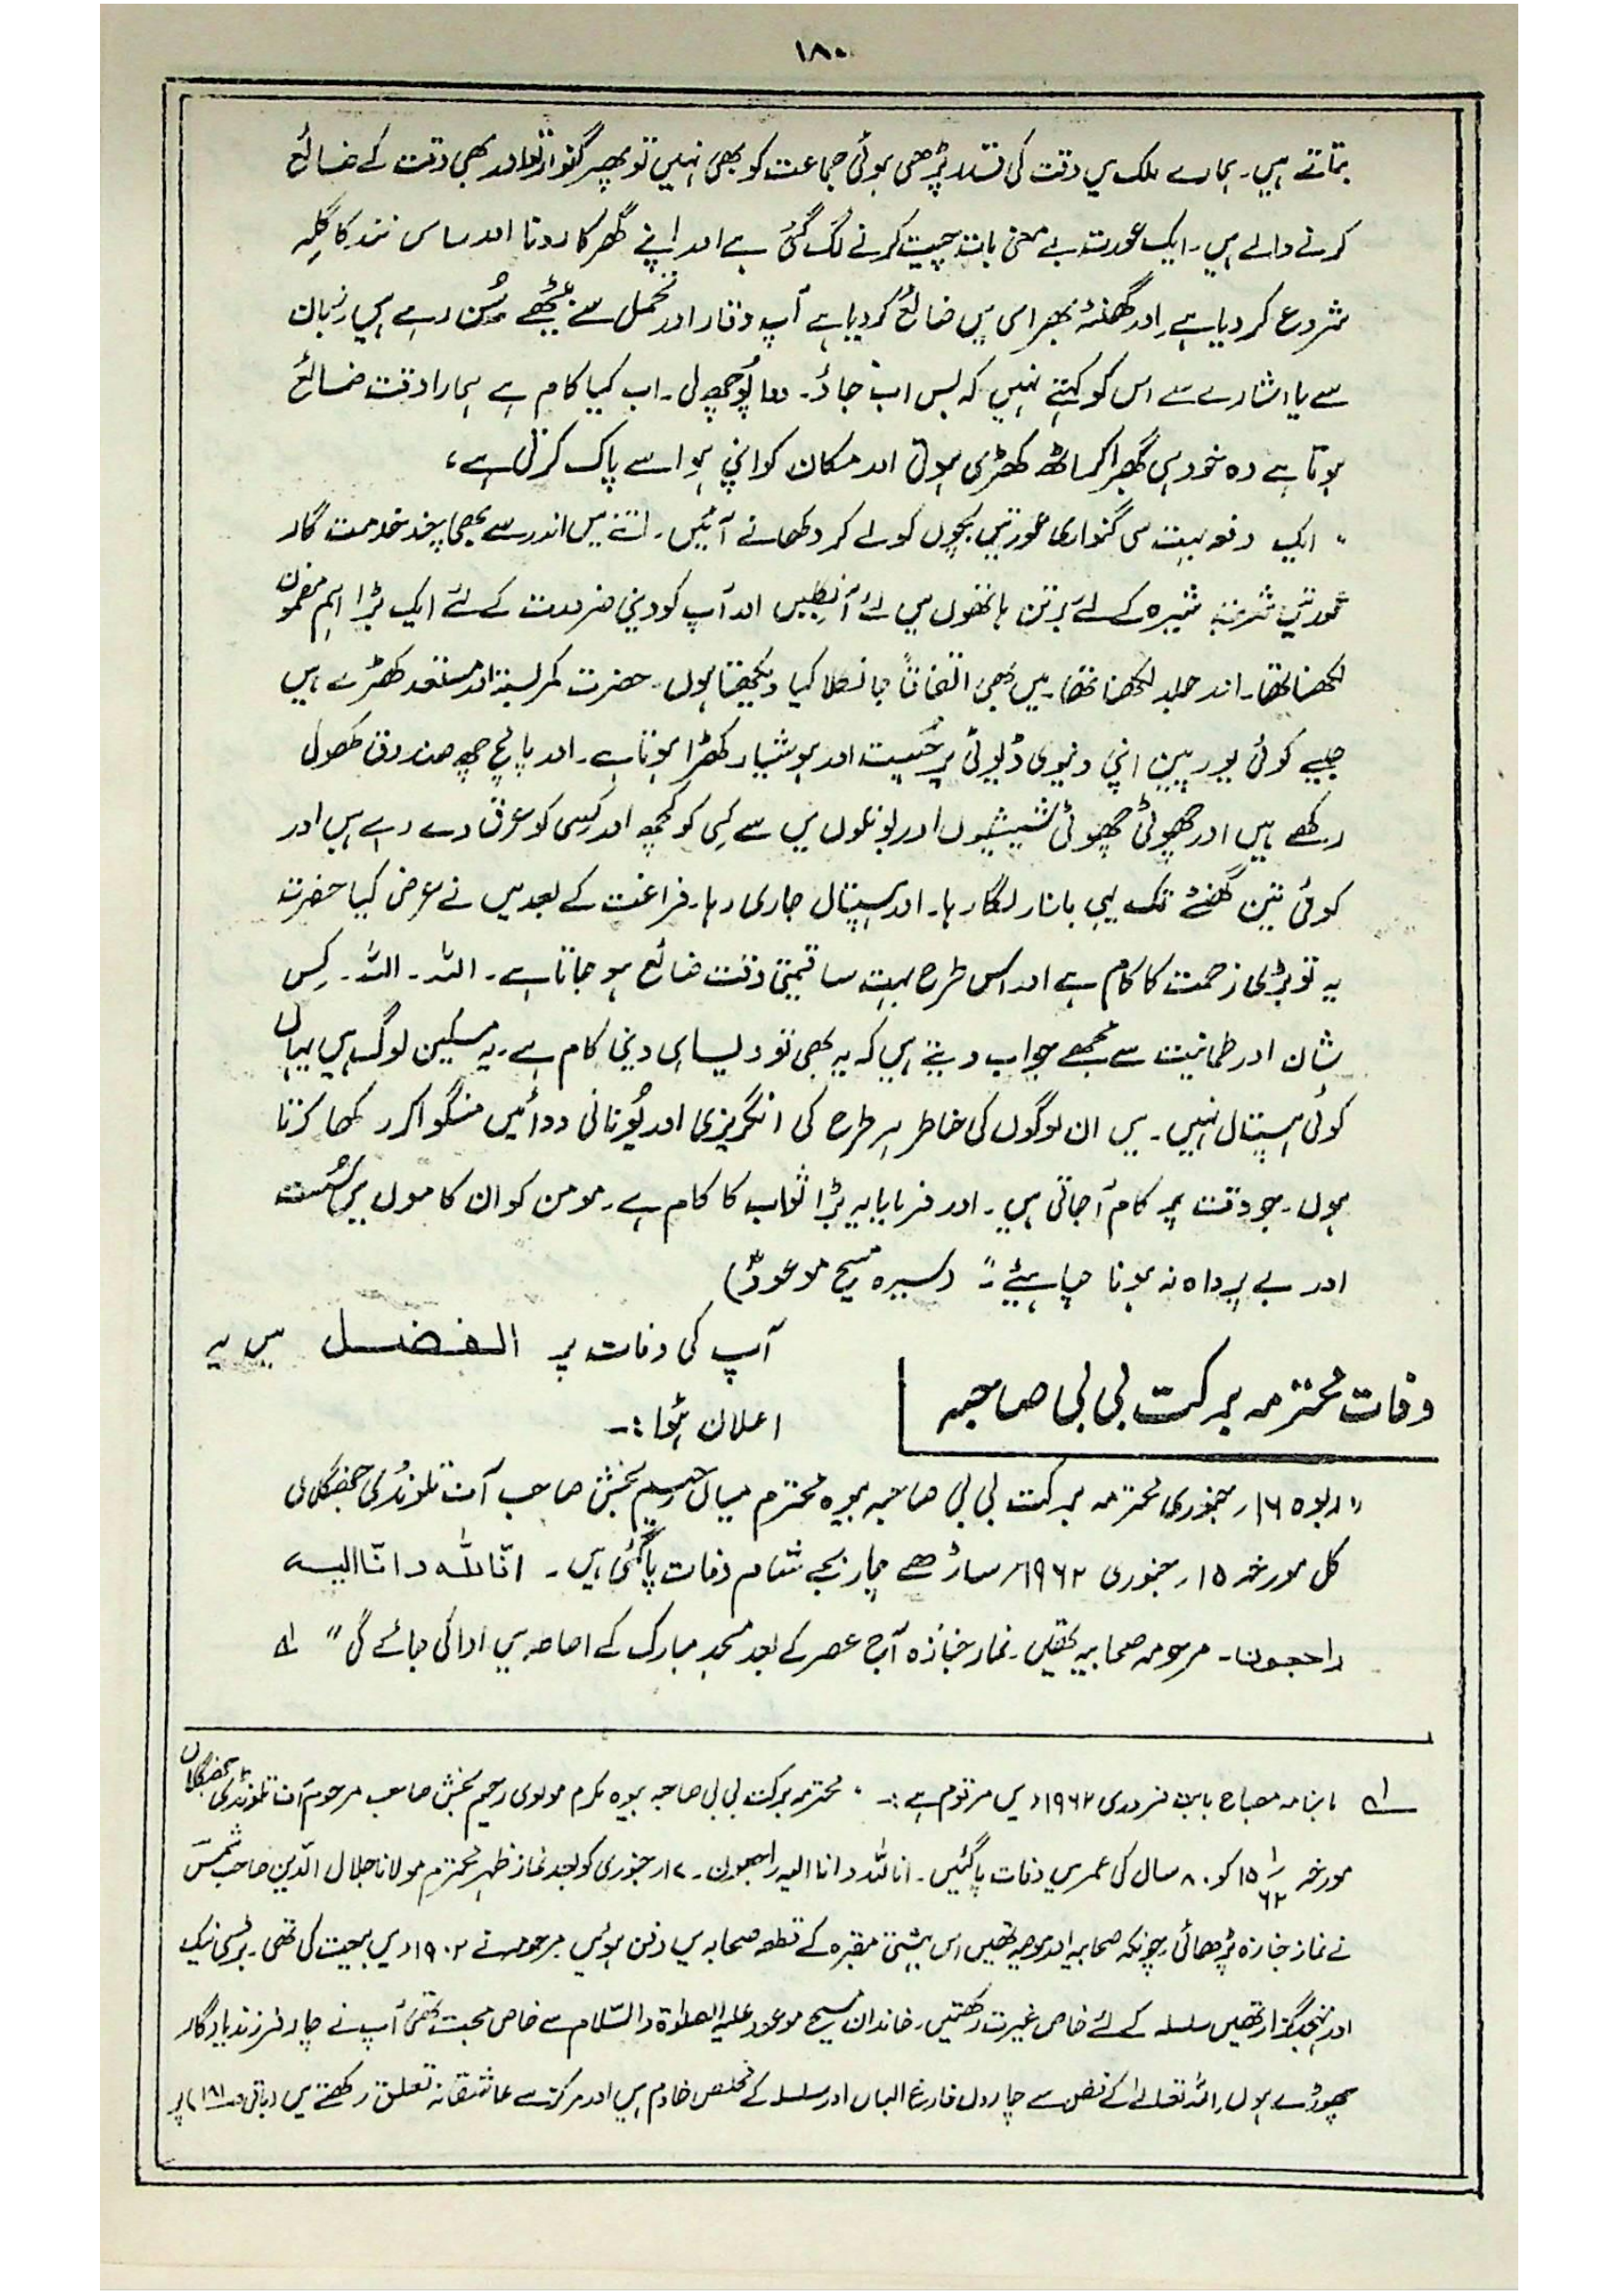 ۱۸۰
بتاتے ہیں۔ ہمارے ملک میں وقت کی قدر پڑھی ہوئی جماعت کو بھی نہیں تو پھر گنوار تو اور بھی وقت کے ضائع
کرنے والے ہیں۔ ایک عورت بے معنی بات چیت کرنے لگ گئی ہے اور اپنے گھر کا رونا اور ساس نند کا گلہ
شروع کر دیا ہے اور گھنٹہ بھر اسی میں ضائع کر دیا ہے آپ وقار اور تحمل سے بیٹھے سُن رہے ہیں زبان
سے یا اشارے سے اس کو کہتے نہیں کہ بس اب جاؤ۔ دوا پُوچھ لی۔ اب کیا کام ہے ہمارا وقت ضائع
ہوتا ہے وہ خود ہی گھبرا کر اٹھ کھڑی ہوتی اور مکان کو اپنی ہوا سے پاک کرتی ہے،
" ایک دفعہ بہت سی گنواری عورتیں بچوں کو لے کر دکھانے آئیں۔ اتنے میں اندر سے بھی چند خدمت گار
عورتیں شربت شیرہ کے لئے برتن ہاتھوں میں لئے آنکلیں اور آپ کو دینی ضرورت کے لئے ایک بڑا اہم مضمون
لکھنا تھا۔ اور جلد لکھنا تھا۔ میں بھی اتفاقاً جا نکلا کیا دیکھتا ہوں۔ حضرت کمر بستہ اور مستعد کھڑے ہیں
جیسے کوئی یورپین اپنی دنیوی ڈیوٹی پر چُست اور ہوشیار کھڑا ہوتا ہے۔ اور پانچ چھ صندوق کھول
رکھے ہیں اور چھوٹی چھوٹی شیشیوں اور بوتلوں میں سے کسی کو کچھ اور کسی کو عرق دے رہے ہیں اور
کوئی تین گھنٹے تک یہی بازار لگا رہا۔ اور ہسپتال جاری رہا۔ فراغت کے بعد میں نے عرض کیا حضرت
یہ تو بڑی زحمت کا کام ہے اور اس طرح بہت سا قیمتی وقت ضائع ہو جاتا ہے۔ اللہ۔ اللہ۔ کِس
نِشان اور طمانیت سے مجھے جواب دیتے ہیں کہ یہ بھی تو ویسا ہی دینی کام ہے۔ یہ مسکین لوگ ہیں یہاں
کوئی ہسپتال نہیں۔ میں ان لوگوں کی خاطر ہر طرح کی انگریزی اور یُونانی دوائیں منگوا کر رکھا کرتا
ہوں۔ جو وقت پر کام آجاتی ہیں۔ اور فرمایا یہ بڑا ثواب کا کام ہے۔ مومن کو ان کاموں میں سُست
اور بے پرواہ نہ ہونا چاہیئے" (سیرہ مسیح موعودؑ)
وفات محترمہ برکت بی بی صاحبہ
آپ کی وفات پر الفضل میں یہ
اعلان ہُوا :۔
"ربوہ ۱۶؍ جنوری محترمہ برکت بی بی صاحبہ بیوہ محترم میاں رحیم بخش صاحب آف تلونڈی جھنگلاں
کل مورخہ ۱۵؍ جنوری ۱۹۶۲ء ساڑھے چار بجے شام وفات پاگئی ہیں۔ انّا للہ و انّا الیہ
راجعون۔ مرحومہ صحابیہ تھیں۔ نماز جنازہ آج عصر کے بعد مسجد مبارک کے احاطہ میں ادا کی جائے گی" لے
لے ماہنامہ مصباح بابت فروری ۱۹۶۲ء میں مرقوم ہے :۔ " محترمہ برکت بی بی صاحبہ بیوہ مکرم مولوی رحیم بخش صاحب مرحوم آف تلونڈی جھنگلاں
مورخہ ۱۵/۱/۶۲ کو ۸۰ سال کی عمر میں وفات پاگئیں۔ انا للہ و انا الیہ راجعون۔ ۱۷؍ جنوری کو بعد نماز ظہر محترم مولانا جلال الدّین صاحب شمسؔ
نے نماز جنازہ پڑھائی چونکہ صحابیہ اور موصیہ تھیں اس بہشتی مقبرہ کے قطعہ صحابہ میں دفن ہوئیں مرحومہ نے ۱۹۰۲ء میں بیعت کی تھی۔ بڑی نیک
اور تہجد گزار تھیں سلسلہ کے لئے خاص غیرت رکھتیں۔ خاندان مسیح موعود علیہ الصلوٰۃ والسّلام سے خاص محبت تھی آپ نے چار فرزند یادگار
چھوڑے ہوں۔ اللہ تعالےٰ کے فضل سے چاروں فارغ البال اور سلسلہ کے مخلص خادم ہیں اور مرکز سے عاشقانہ تعلق رکھتے ہیں (باقی صا۱۸۱ پر)